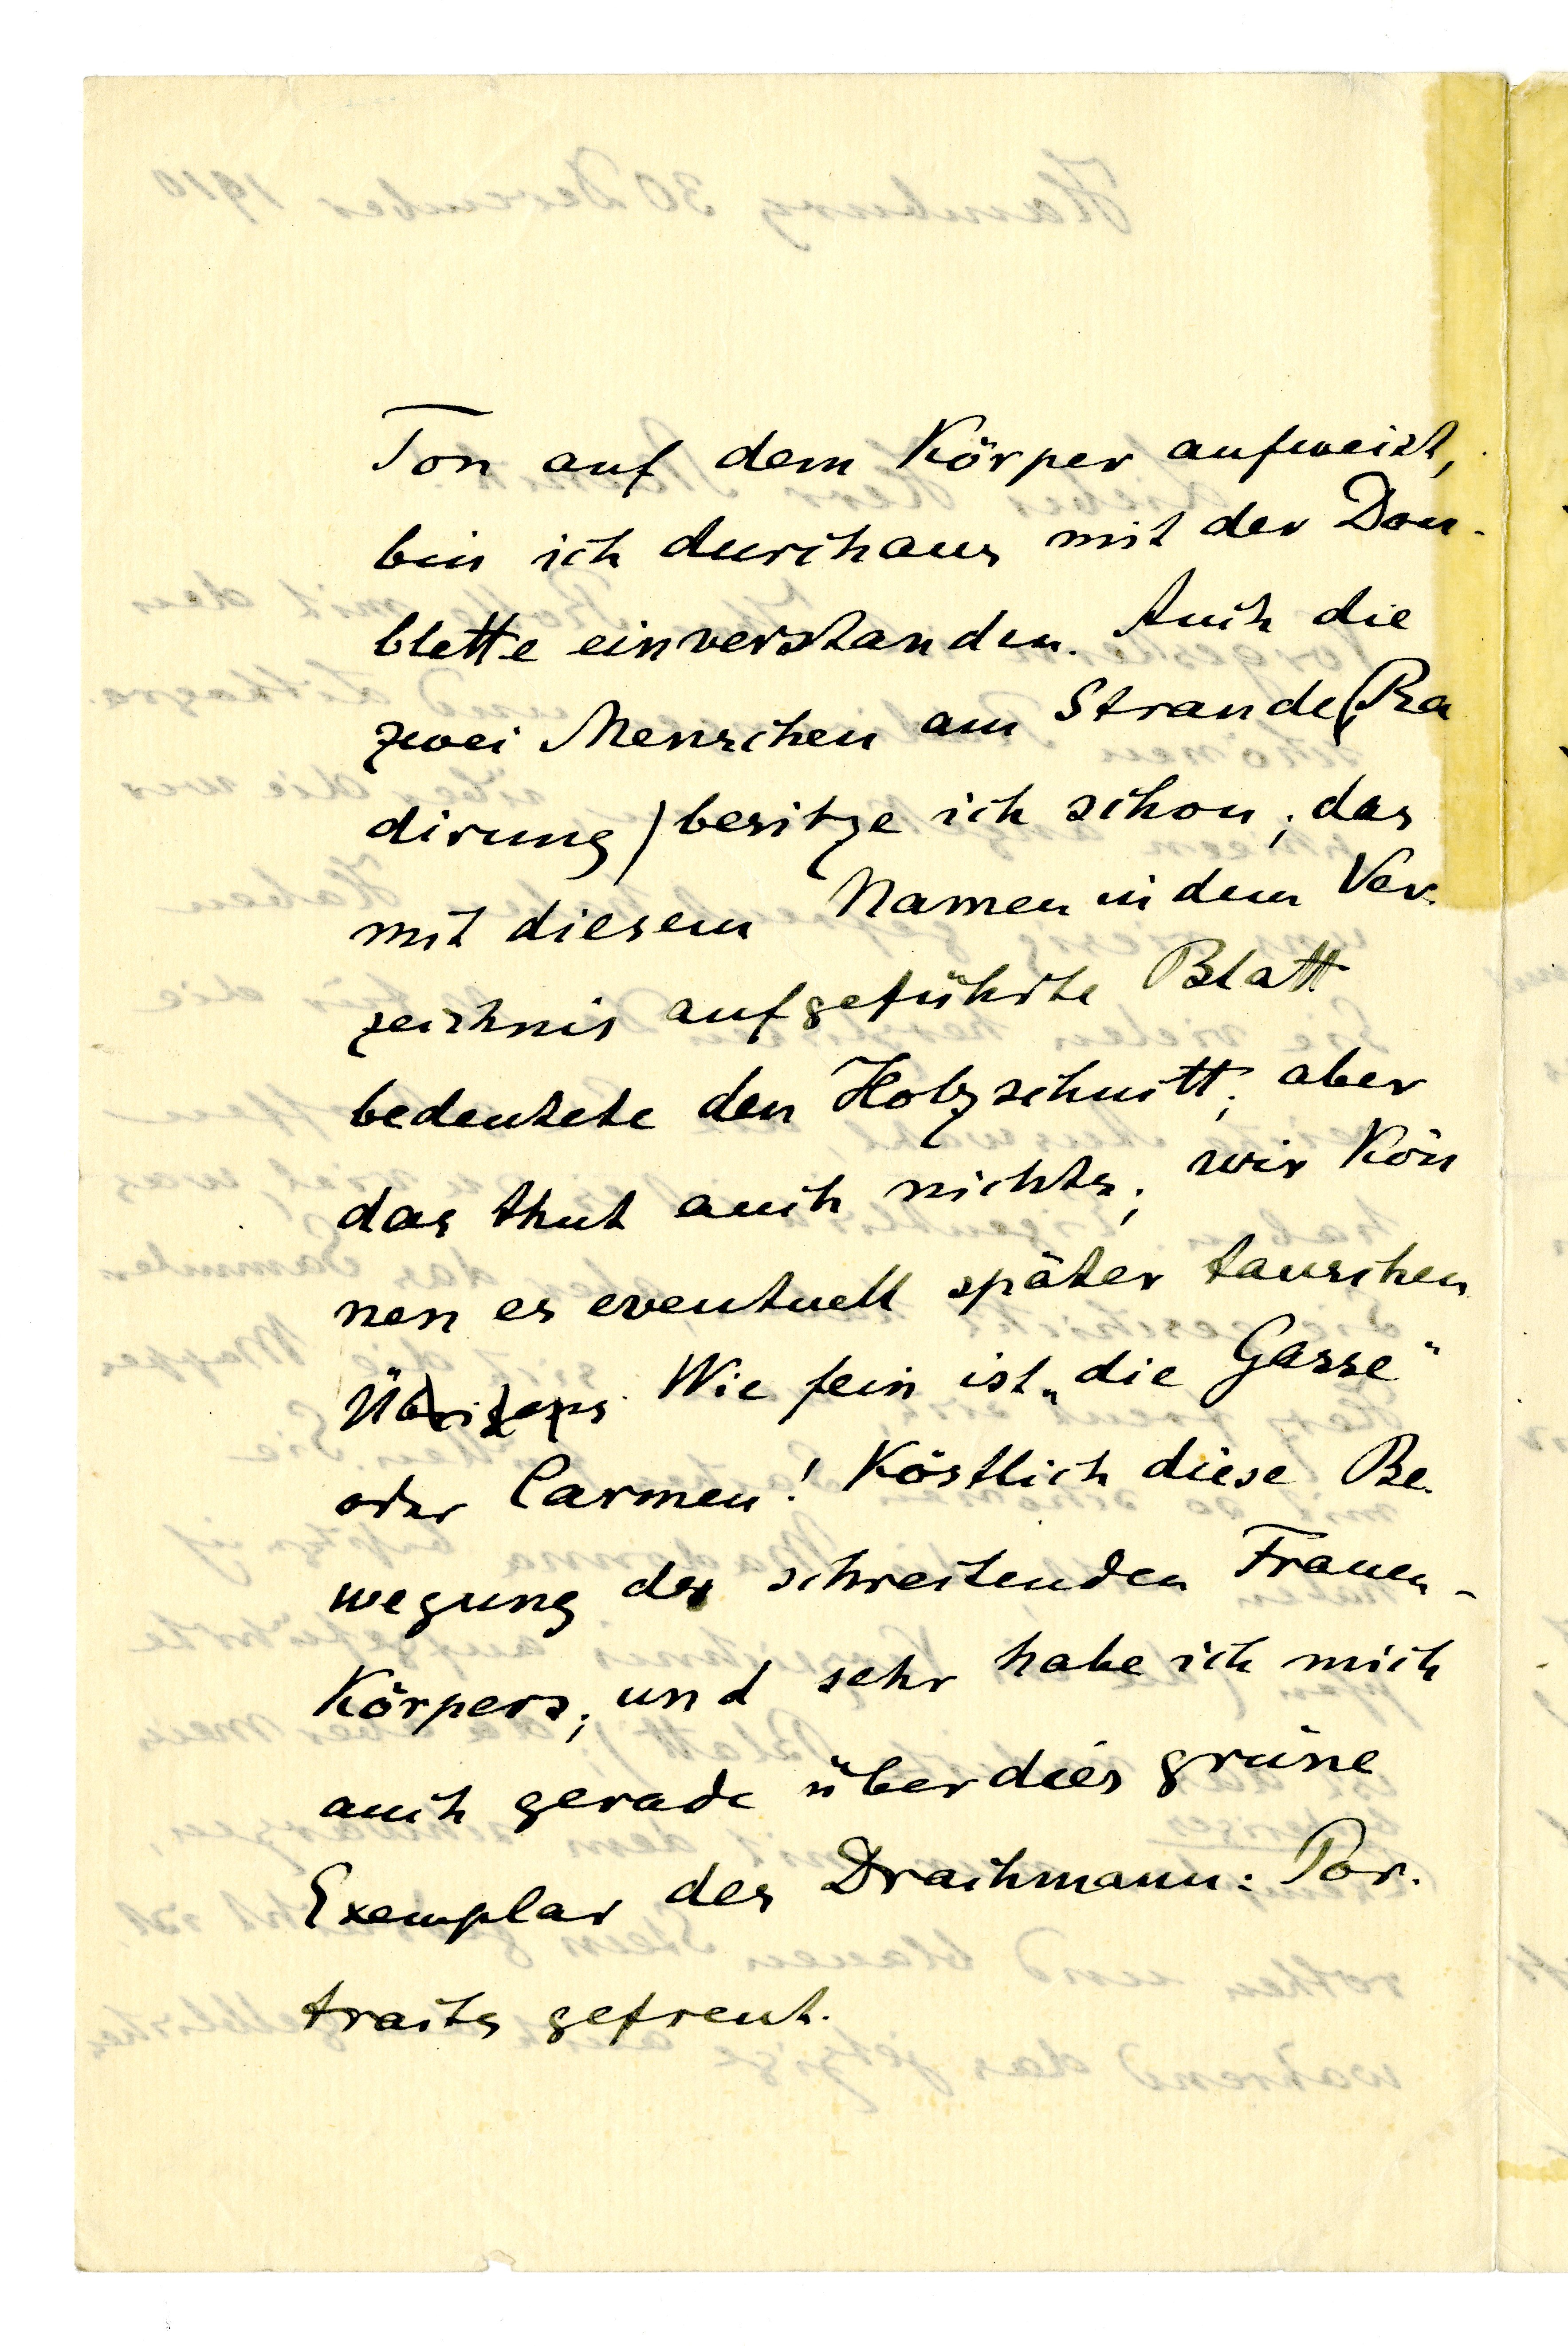 Ton auf dem Körper aufweist,
bin ich durchaus mit der Dou-
blette einverstanden. Auch die
zwei Menschen am Strande (Ra
dirung) besitze ich schon; das
mit diesem Namen in dem Ver-
zeichnis aufgeführte Blatt
bedeutete den Holzschnitt; aber
das thut auch nichts; wir kön
nen es eventuell später tauschen
Übrigens. Wie fein ist „die Gasse"
oder Carmen! Köstlich diese Be-
wegung des schreitenden Frauen-
Körpers; und sehr habe ich mich
auch gerade über dies grüne
Exemplar des Drachmann: Por-
traits gefreut.